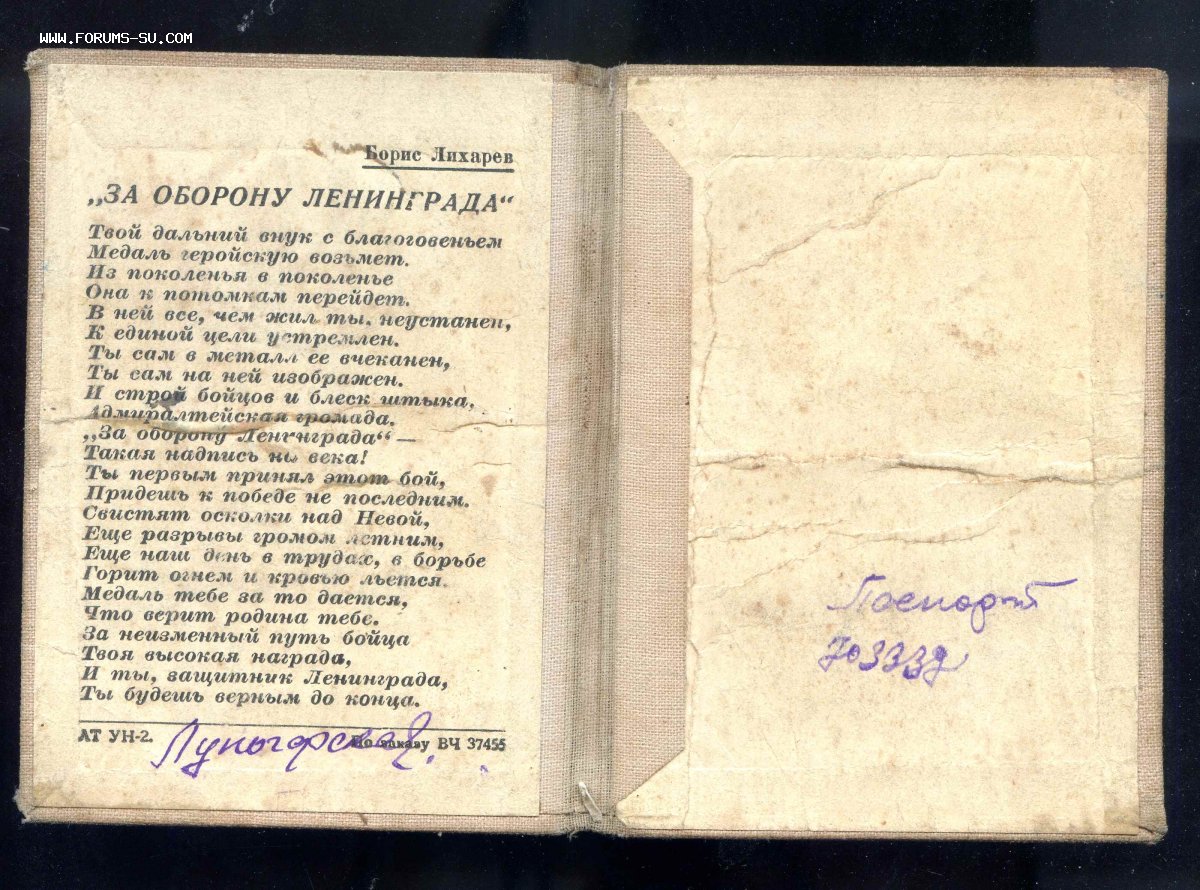 WWW.FORUMS-SU.COM
Борис Лихарев
„ЗА ОБОРОНУ ЛЕНИНГРАДА“
Твой дальний внук с благоговеньем
Медаль геройскую возьмет.
Из поколенья в поколенье
Она к потомкам перейдет.
В ней все, чем жил ты, неустанен,
К единой цели устремлен.
Ты сам в металл ее вчеканен,
Ты сам на ней изображен.
И строй бойцов и блеск штыка,
Адмиралтейская громада.
„За оборону Ленинграда“ —
Такая надпись на века!
Ты первым принял этот бой,
Придешь к победе не последним.
Свистят осколки над Невой,
Еще разрывы громом летним,
Еще наш день в трудах, в борьбе
Горит огнем и кровью льется.
Медаль тебе за то дается,
Что верит родина тебе.
За неизменный путь бойца
Твоя высокая награда,
И ты, защитник Ленинграда,
Ты будешь верным до конца.
АТ УН-2. По заказу ВЧ 37455
Паспорт